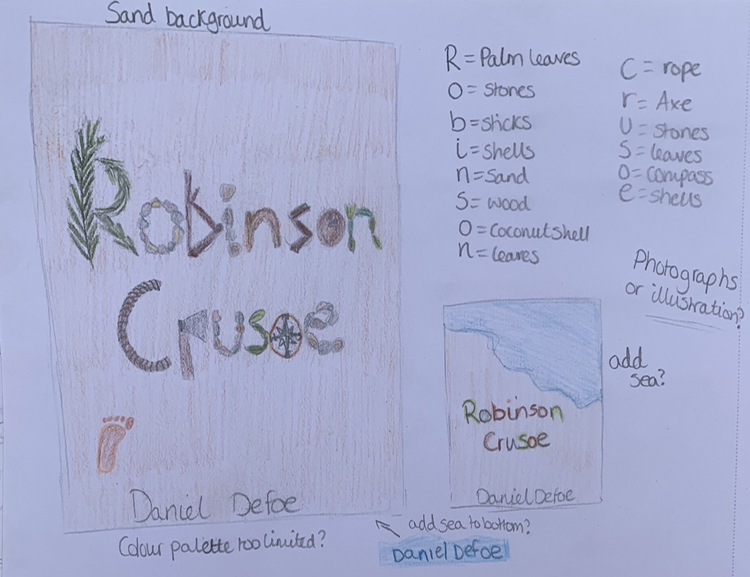 Sand background
Robinson
Crusoe
Daniel Defoe
Colour palette too limited?
R = Palm leaves
o = stones
b = sticks
i = shells
n = sand
s = wood
o = coconut shell
n = leaves
C = rope
r = Axe
u = stones
s = leaves
o = compass
e = shells
Photographs
or illustration?
add
sea?
Robinson
Crusoe
Daniel Defoe
add sea to bottom?
Daniel Defoe